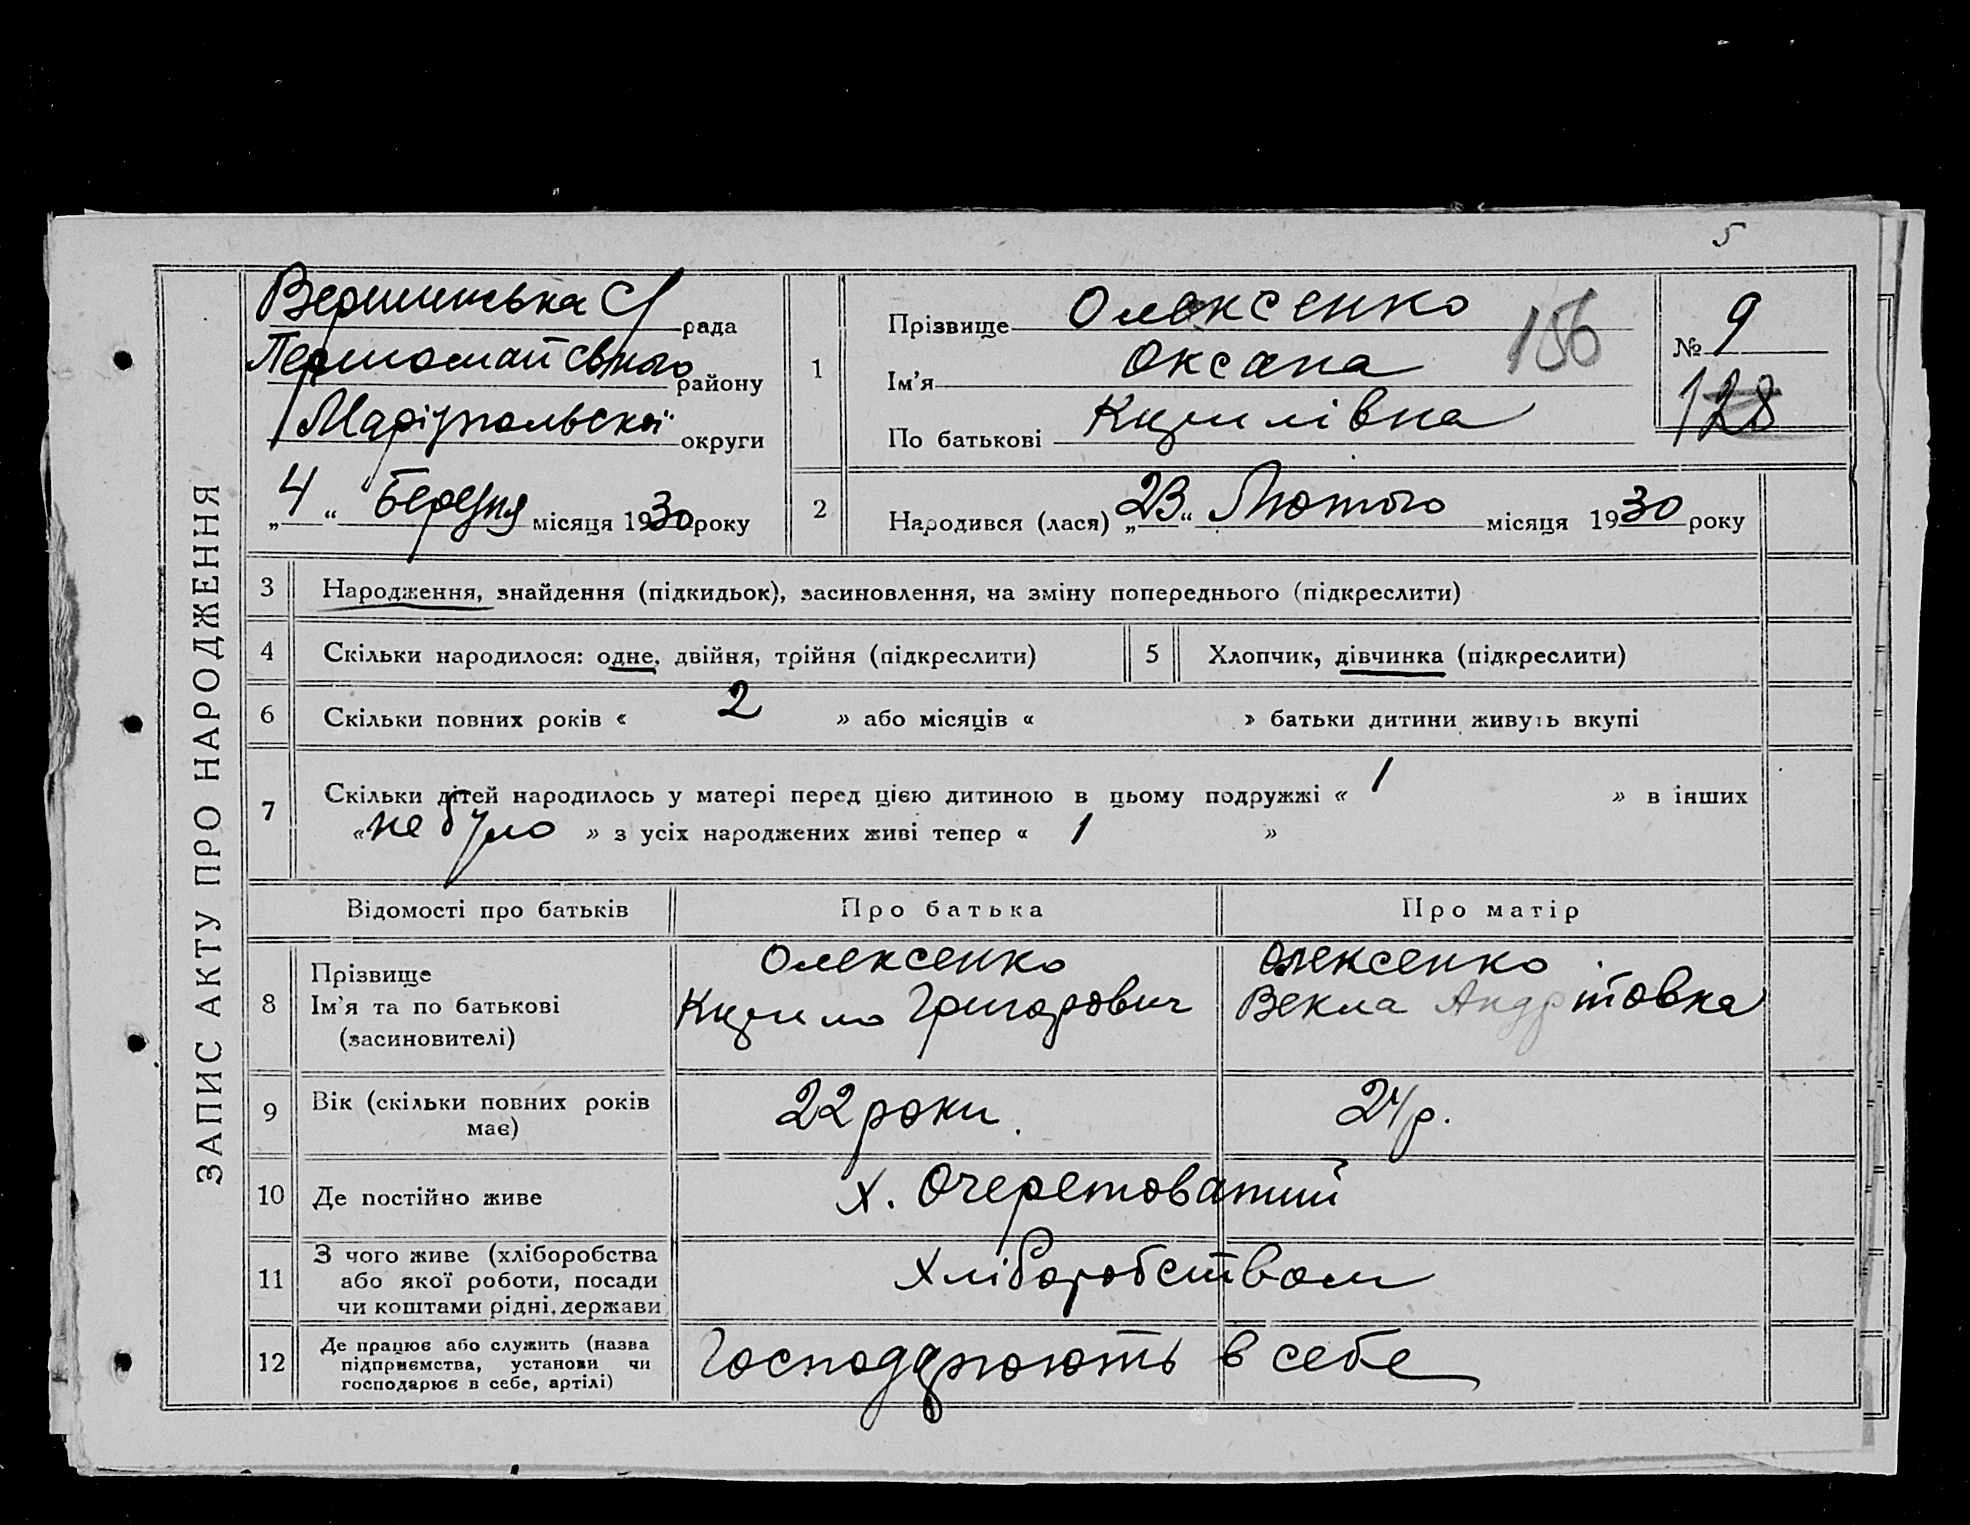 5
ЗАПИС АКТУ ПРО НАРОДЖЕННЯ
Вершинська С/ рада
Першомайського району
Маріупольскої округи
„4“ Березня місяця 1930 року
1
Прізвище Олексенко
Ім'я Оксана
По батькові Кирилівна
156
№ 9
128
2
Народився (лася) „23“ Лютого місяця 1930 року
3 Народження, знайдення (підкидьок), засиновлення, на зміну попереднього (підкреслити)
4 Скільки народилося: одне, двійня, трійня (підкреслити) 5 Хлопчик, дівчинка (підкреслити)
6 Скільки повних років « 2 » або місяців « » батьки дитини живуть вкупі
7 Скільки дітей народилось у матері перед цією дитиною в цьому подружжі « 1 » в інших
«не було » з усіх народжених живі тепер « 1 »
Відомості про батьків Про батька Про матір
8 Прізвище Олексенко Олексенко
Ім'я та по батькові Кирило Григорович Векла
(засиновителі)
9 Вік (скільки повних років має) 22 роки. 24 р.
10 Де постійно живе х. Очеретоватий
11 З чого живе (хліборобства
або якої роботи, посади Хліборобством
чи коштами рідні, держави
12 Де працює або служить (назва
підприємства, установи чи Господарюють в себе
господарює в себе, артілі)